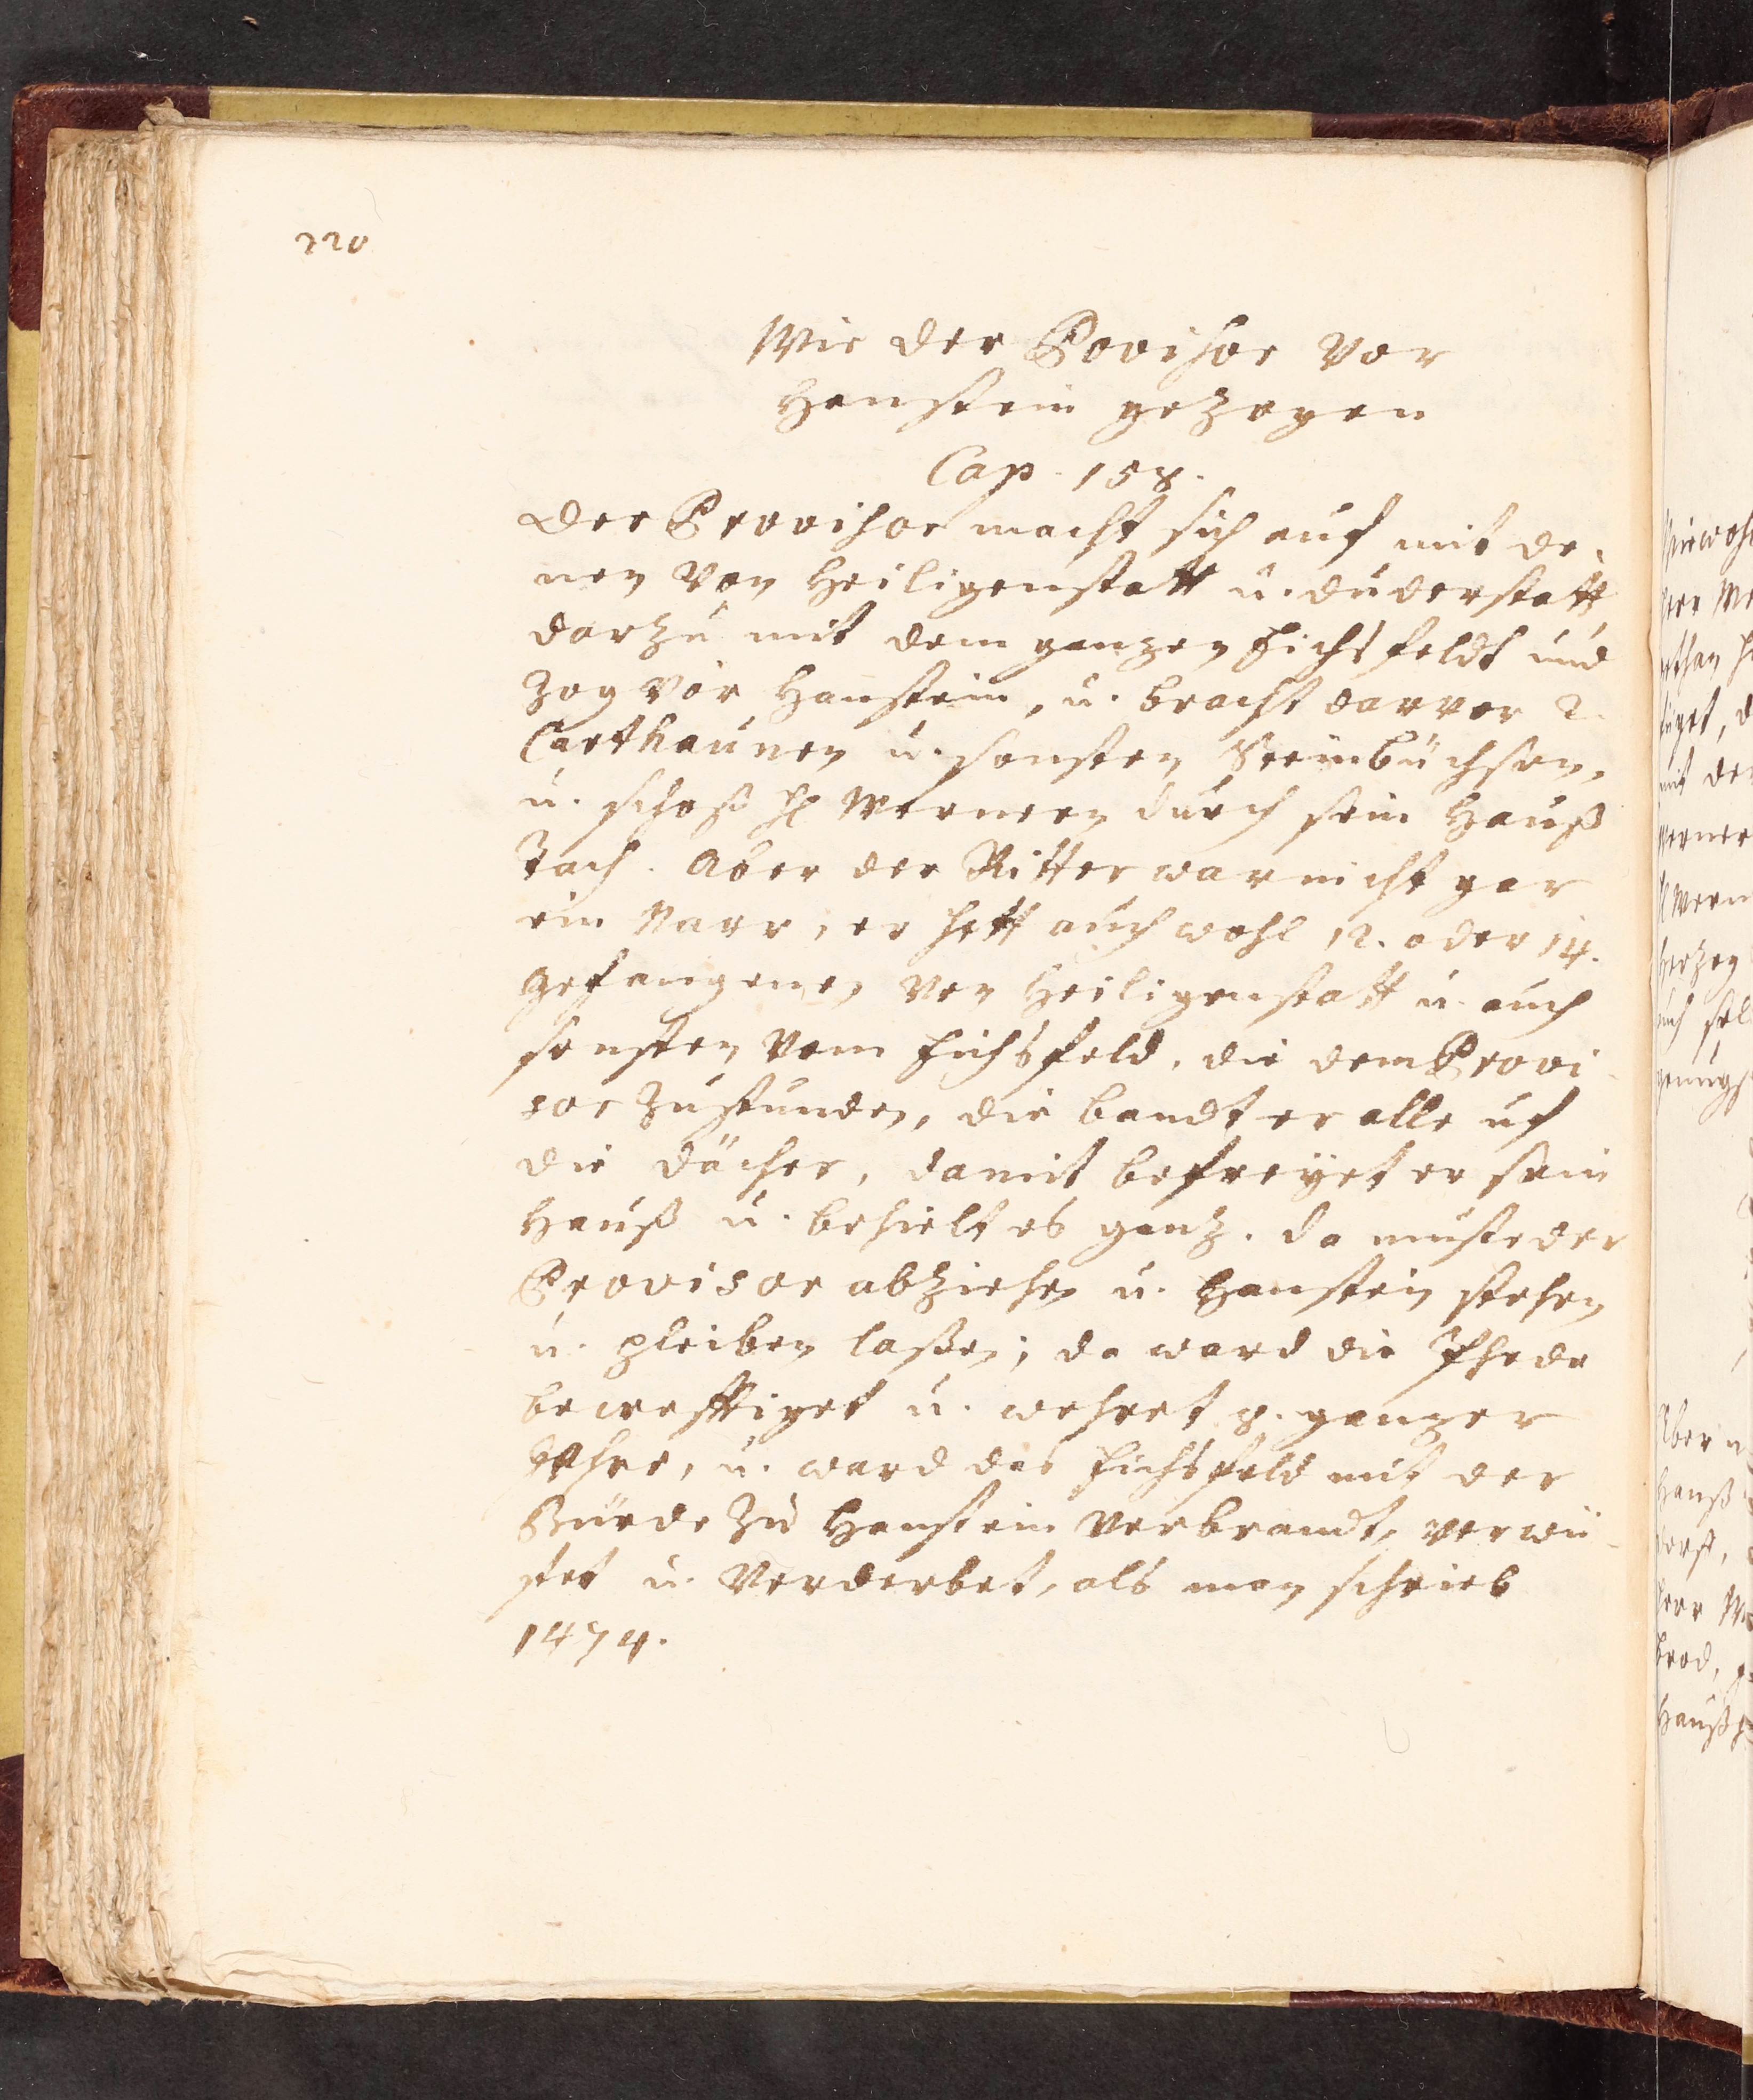 220
Wie der Povisor vor
Hanstein gezogen
Cap. 158.
Der Provisor macht sich auf mit de-
nen von Heiligenstatt u. duderstatt
darzu mit dem ganzen Eichsfeldt und
Zog vor Hanstein, u. bracht darvor 2.
Carthaunen u. sonsten Steinbüchsen,
u. schoß H. Wernern durch sein Hauß
Tach. Aber der Ritter war nicht gar
ein Narr, er hett auch wohl 12. oder 14.
gefangenen von Heiligenstatt u. auch
sonsten vom Eichsfeld, die dem Provi-
sor Zustunden, die bandt er alle uf
die dächer, damit befreyet er sein
Hauß u. behielt es ganz. da muste der
Provisor abziehen u. Hanstein stehen
u. pleiben laßen; da ward die Phede
becrefftiget u. wehret 8. ganzer
Jahre, u. ward das Eichsfeld mit der
Bürde Zu Hanstein verbrandt, verwü-
stet u. verderbet, als man schrieb
1474.